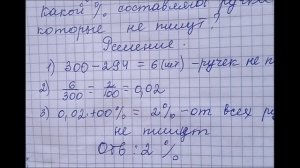 какой % составляют ручки
которые не пишут?
Решение.
1) 300 – 294 = 6 (шт) – ручек не п
2) 6/300 = 2/100 = 0,02
3) 0,02·100% = 2% – от всех ру
не пишут
Отв: 2 %